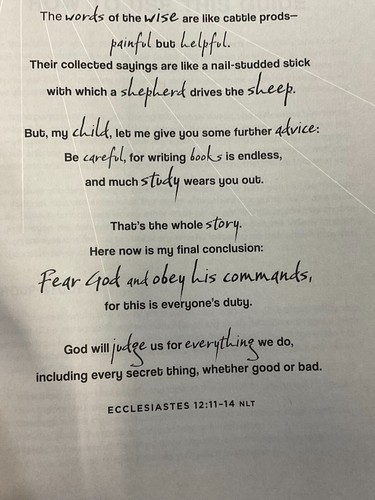 The words of the wise are like cattle prods—
painful but helpful.
Their collected sayings are like a nail-studded stick
with which a shepherd drives the sheep.
But, my child, let me give you some further advice:
Be careful, for writing books is endless,
and much study wears you out.
That's the whole story.
Here now is my final conclusion:
Fear God and obey his commands,
for this is everyone's duty.
God will judge us for everything we do,
including every secret thing, whether good or bad.
ECCLESIASTES 12:11–14 NLT